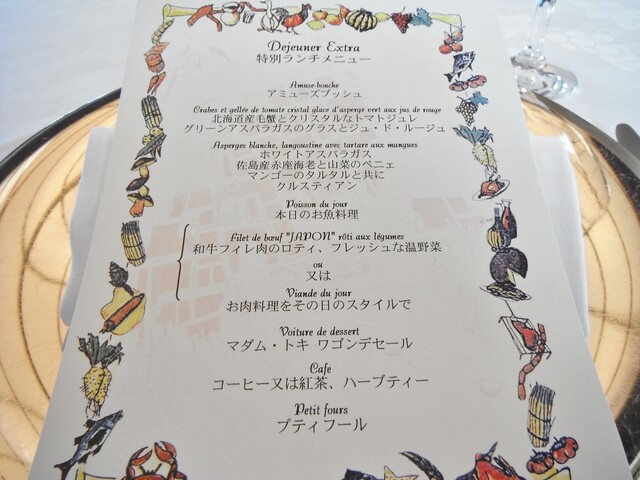 Dejeuner Extra
特別ランチメニュー
Amuse-bouche
アミューズブッシュ
Crabes et gellée de tomate cristal glace d'asperge vert aux jus de rouge
北海道産毛蟹とクリスタルなトマトジュレ
グリーンアスパラガスのグラスとジュ・ド・ルージュ
Asperges blanche, langoustine avec tartare aux mangues
ホワイトアスパラガス
佐島産赤座海老と山菜のベニェ
マンゴーのタルタルと共に
クルスティアン
Poisson du jour
本日のお魚料理
Filet de bœuf "JAPON" rôti aux légumes
和牛フィレ肉のロティ、フレッシュな温野菜
ou
又は
Viande du jour
お肉料理をその日のスタイルで
Voiture de dessert
マダム・トキ ワゴンデセール
Cafe
コーヒー又は紅茶、ハーブティー
Petit fours
プティフール